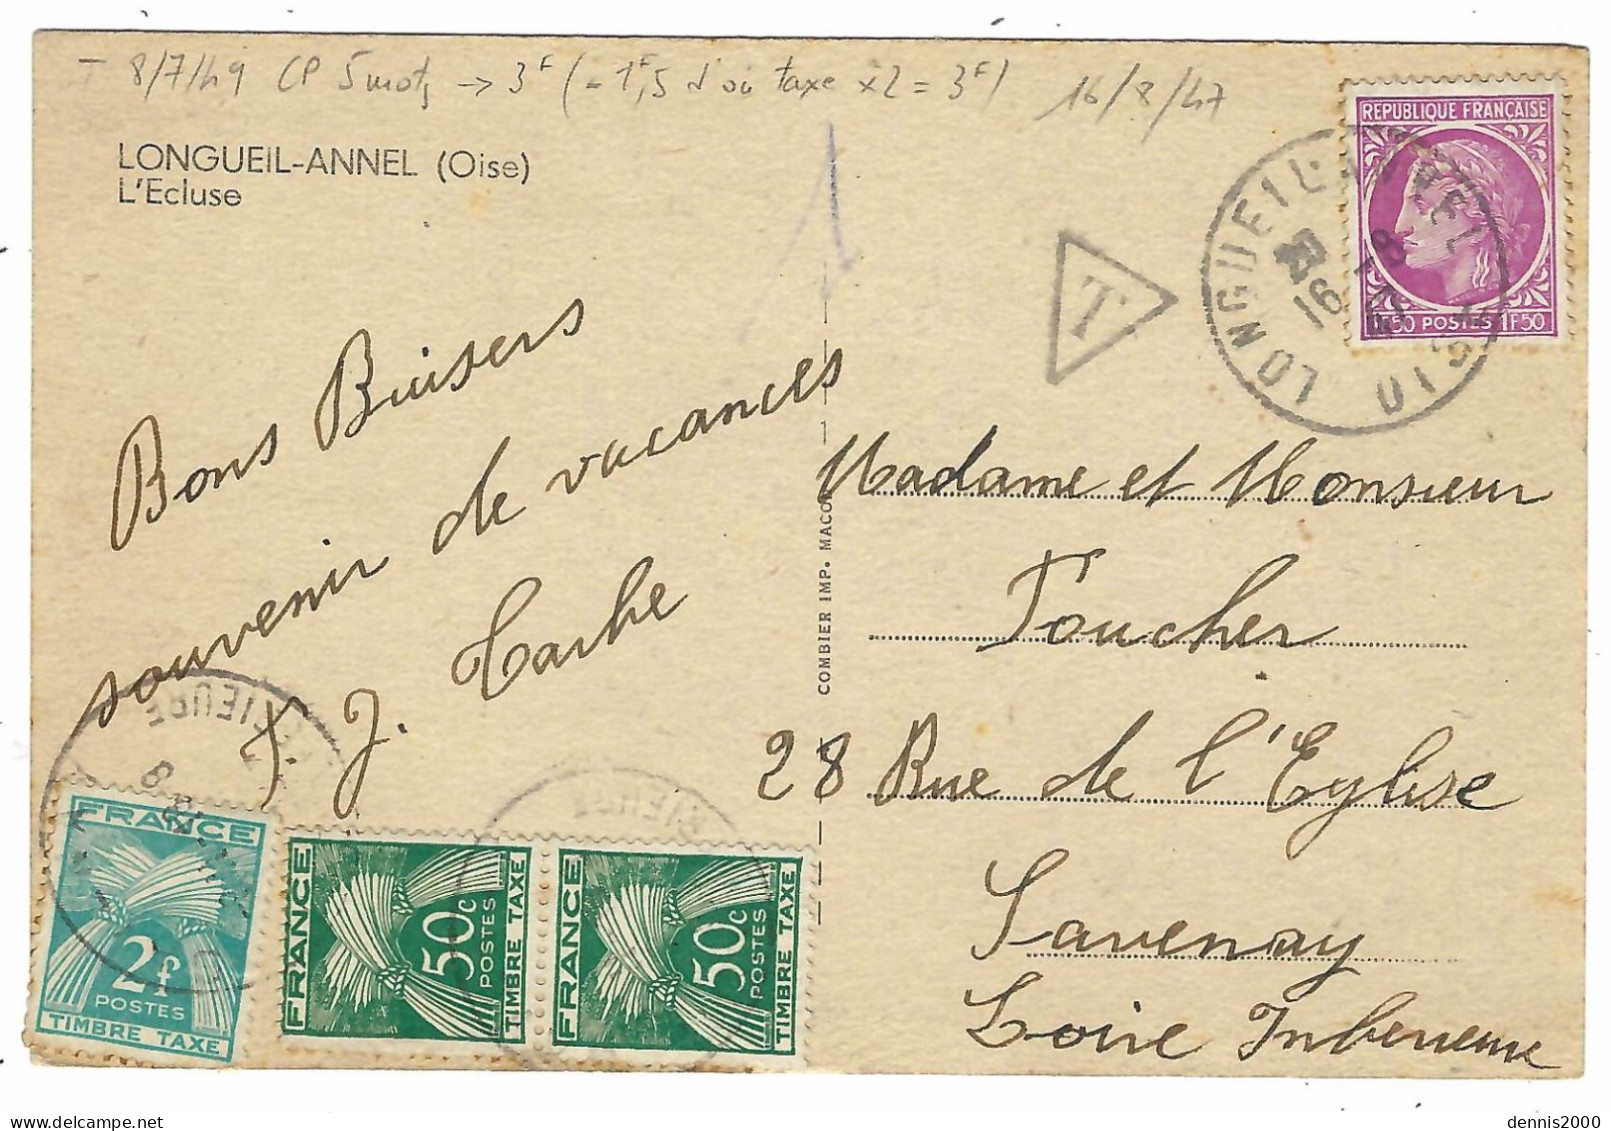 T 8/7/49 CP 5 mots → 3F (-1F,5 d'où taxe x2 = 3F) 16/8/47
LONGUEIL-ANNEL (Oise)
L'Ecluse
REPUBLIQUE FRANÇAISE
1F50 POSTES 1F50
LONGUEIL-ANNEL
OISE
16
8
T
Bons Baisers
souvenir de vacances
J.
Madame et Monsieur
Foucher
28 Rue de l'Eglise
Savenay
Loire Inferieure
COMBIER IMP. MACON
FRANCE
2f
POSTES
TIMBRE TAXE
FRANCE
50c
POSTES
TIMBRE TAXE
FRANCE
50c
POSTES
TIMBRE TAXE
dennis2000